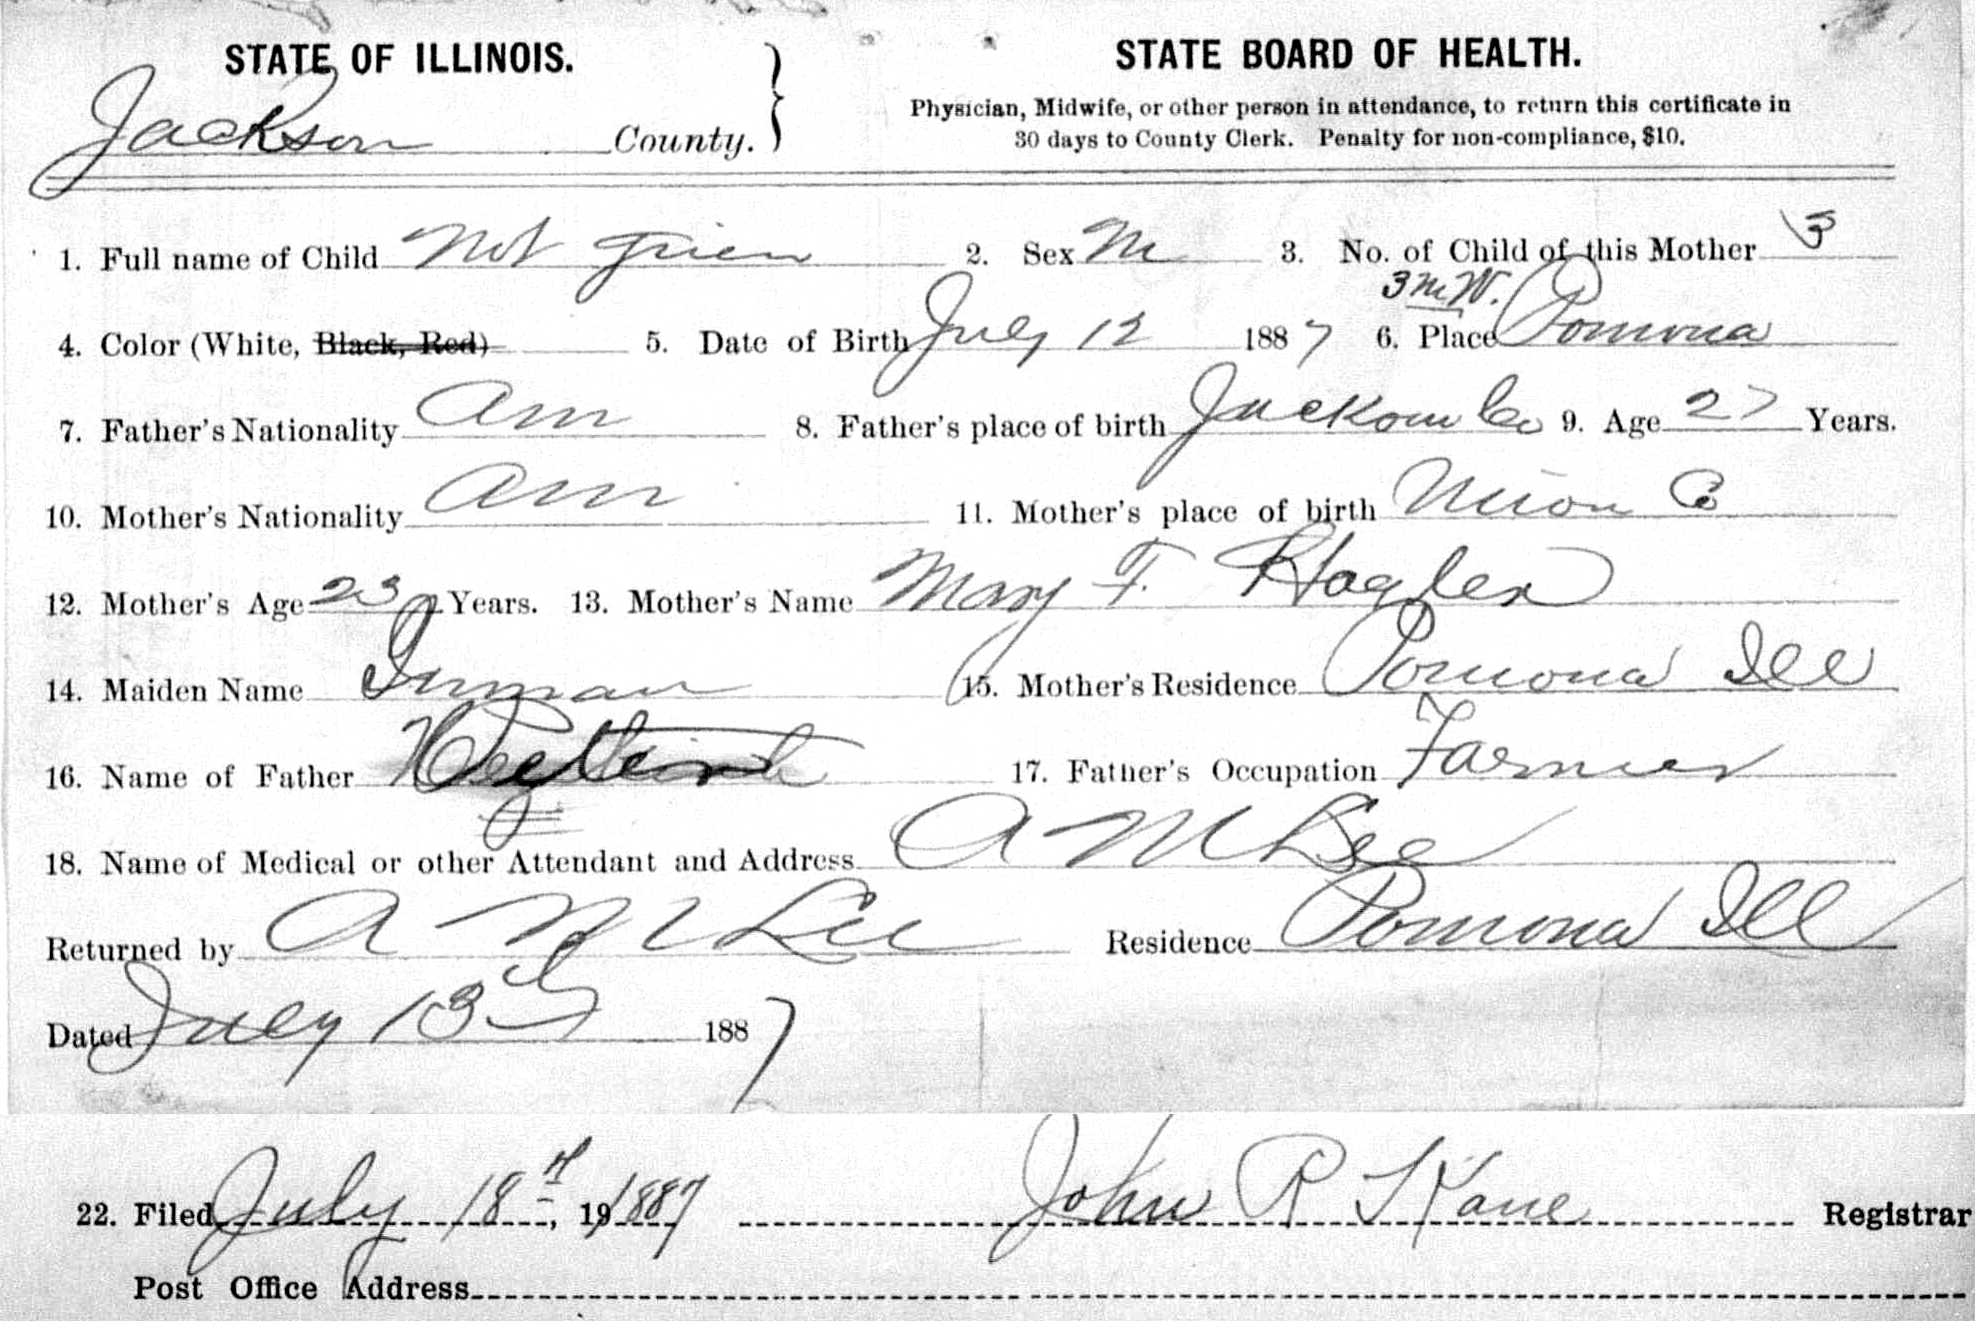 STATE OF ILLINOIS.
Jackson County.
STATE BOARD OF HEALTH.
Physician, Midwife, or other person in attendance, to return this certificate in
30 days to County Clerk. Penalty for non-compliance, $10.
1. Full name of Child Not given 2. Sex M 3. No. of Child of this Mother 3
3 M W.
4. Color (White, Black, Red) 5. Date of Birth July 12 1887 6. Place Pomona
7. Father's Nationality Am 8. Father's place of birth Jackson Co 9. Age 27 Years.
10. Mother's Nationality Am 11. Mother's place of birth Union Co
12. Mother's Age 23 Years. 13. Mother's Name Mary F. Hagler
14. Maiden Name Inman 15. Mother's Residence Pomona Ill
16. Name of Father 17. Father's Occupation Farmer
18. Name of Medical or other Attendant and Address A M Lee
Returned by A M Lee Residence Pomona Ill
Dated July 13th 1887
22. Filed July 18th, 19 1887 John R Kane Registrar
Post Office Address